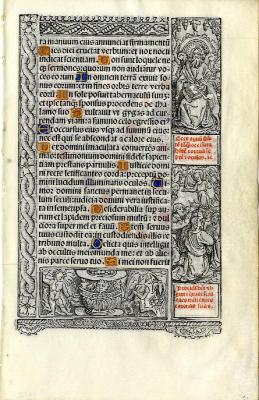 ra manuum eius annunciat firmamentū
Dies diei eructat verbum: et nox nocti
indicat scientiam. Non sunt loquele ne
qz sermones: quorum non audiantur vo
ces eorum In omnem terrā exiuit so
nus eorum: et in fines orbis terre verba
eorū In sole posuit tabernaculū suū:
et ipse tanqz sponsus procedens de tha
lamo suo Exultauit vt gygas ad cur
rendam viam: a summo celo egressio ei9
Et occursus eius vsqz ad summū eius:
nec est qui se abscondat a calore eius.
Lex domini immaculata conuertēs ani
mas: testimonium domini fidele sapien
tiam prestans paruulis Iusticie domi
ni recte letificantes corda: preceptū do
mini lucidum illuminans oculos. Ti
mor domini sanctus permanet in secu
lum seculi: iudicia domini vera iustifica
ta in semetipsa. Desiderabilia sup au
rum et lapidem preciosum multū: et dul
ciora super mel et fauū. Etenim seruus
tuus custodit ea: in custodiendis illis re
tributio multa. Delicta quis intelligit
ab occultis meis munda me: et ab alie
nis parce seruo tuo. Si mei non fuerīt